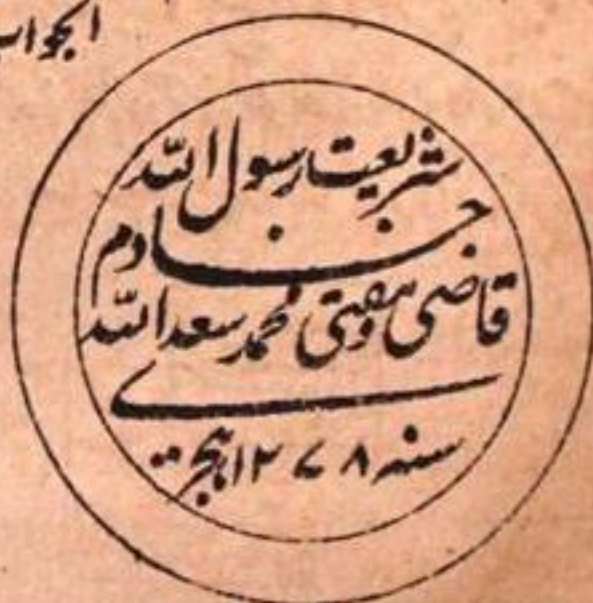 الجواب
شریعت رسول اللہ
خادم
قاضی و مفتی محمد سعد اللہ
سنہ ۱۲۷۸ ہجری